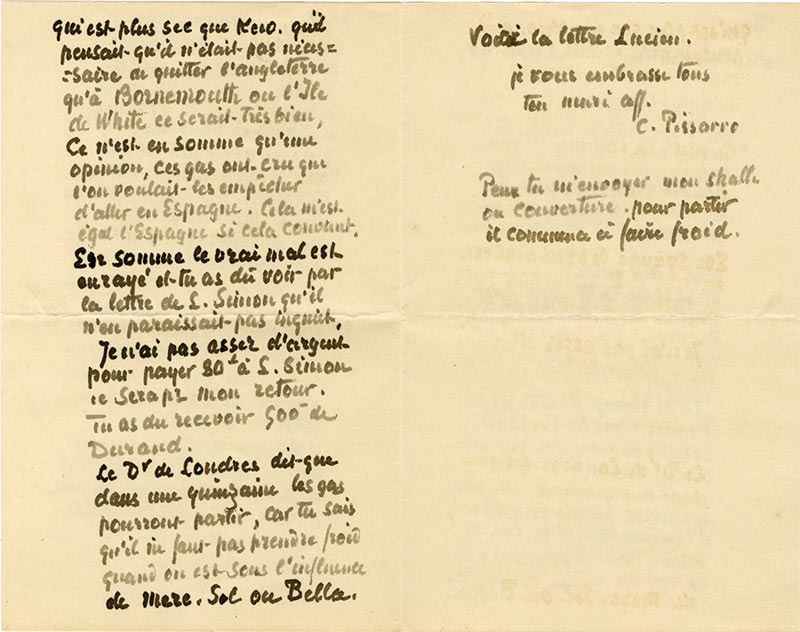 qui est plus sec que Kew. qu'il
pensait qu'il n'était pas néces=
=saire de quitter l'angleterre
qu'à Bornemouth ou l'Ile
de White ce serait très bien,
Ce n'est en somme qu'une
opinion, ces gas ont cru que
l'on voulait les empêcher
d'aller en Espagne. Cela m'est
égal l'Espagne si cela convient.
En somme le vrai mal est
enrayé et tu as dû voir par
la lettre de L. Simon qu'il
n'en paraissait pas inquiet.
Je n'ai pas assez d'argent
pour payer 80£ à L. Simon
ce sera pr mon retour.
Tu as du recevoir 500 de
Durand.
Le Dr de Londres dit que
dans une quinzaine les gas
pourront partir, car tu sais
qu'il ne faut pas prendre froid
quand on est sous l'influence
de Merc. Sol ou Bella.
Voici la lettre Lucien.
je vous embrasse tous
ton mari aff.
C. Pissarro
Peux tu m'envoyer mon shalle
ou couverture pour partir
il commence à faire froid.